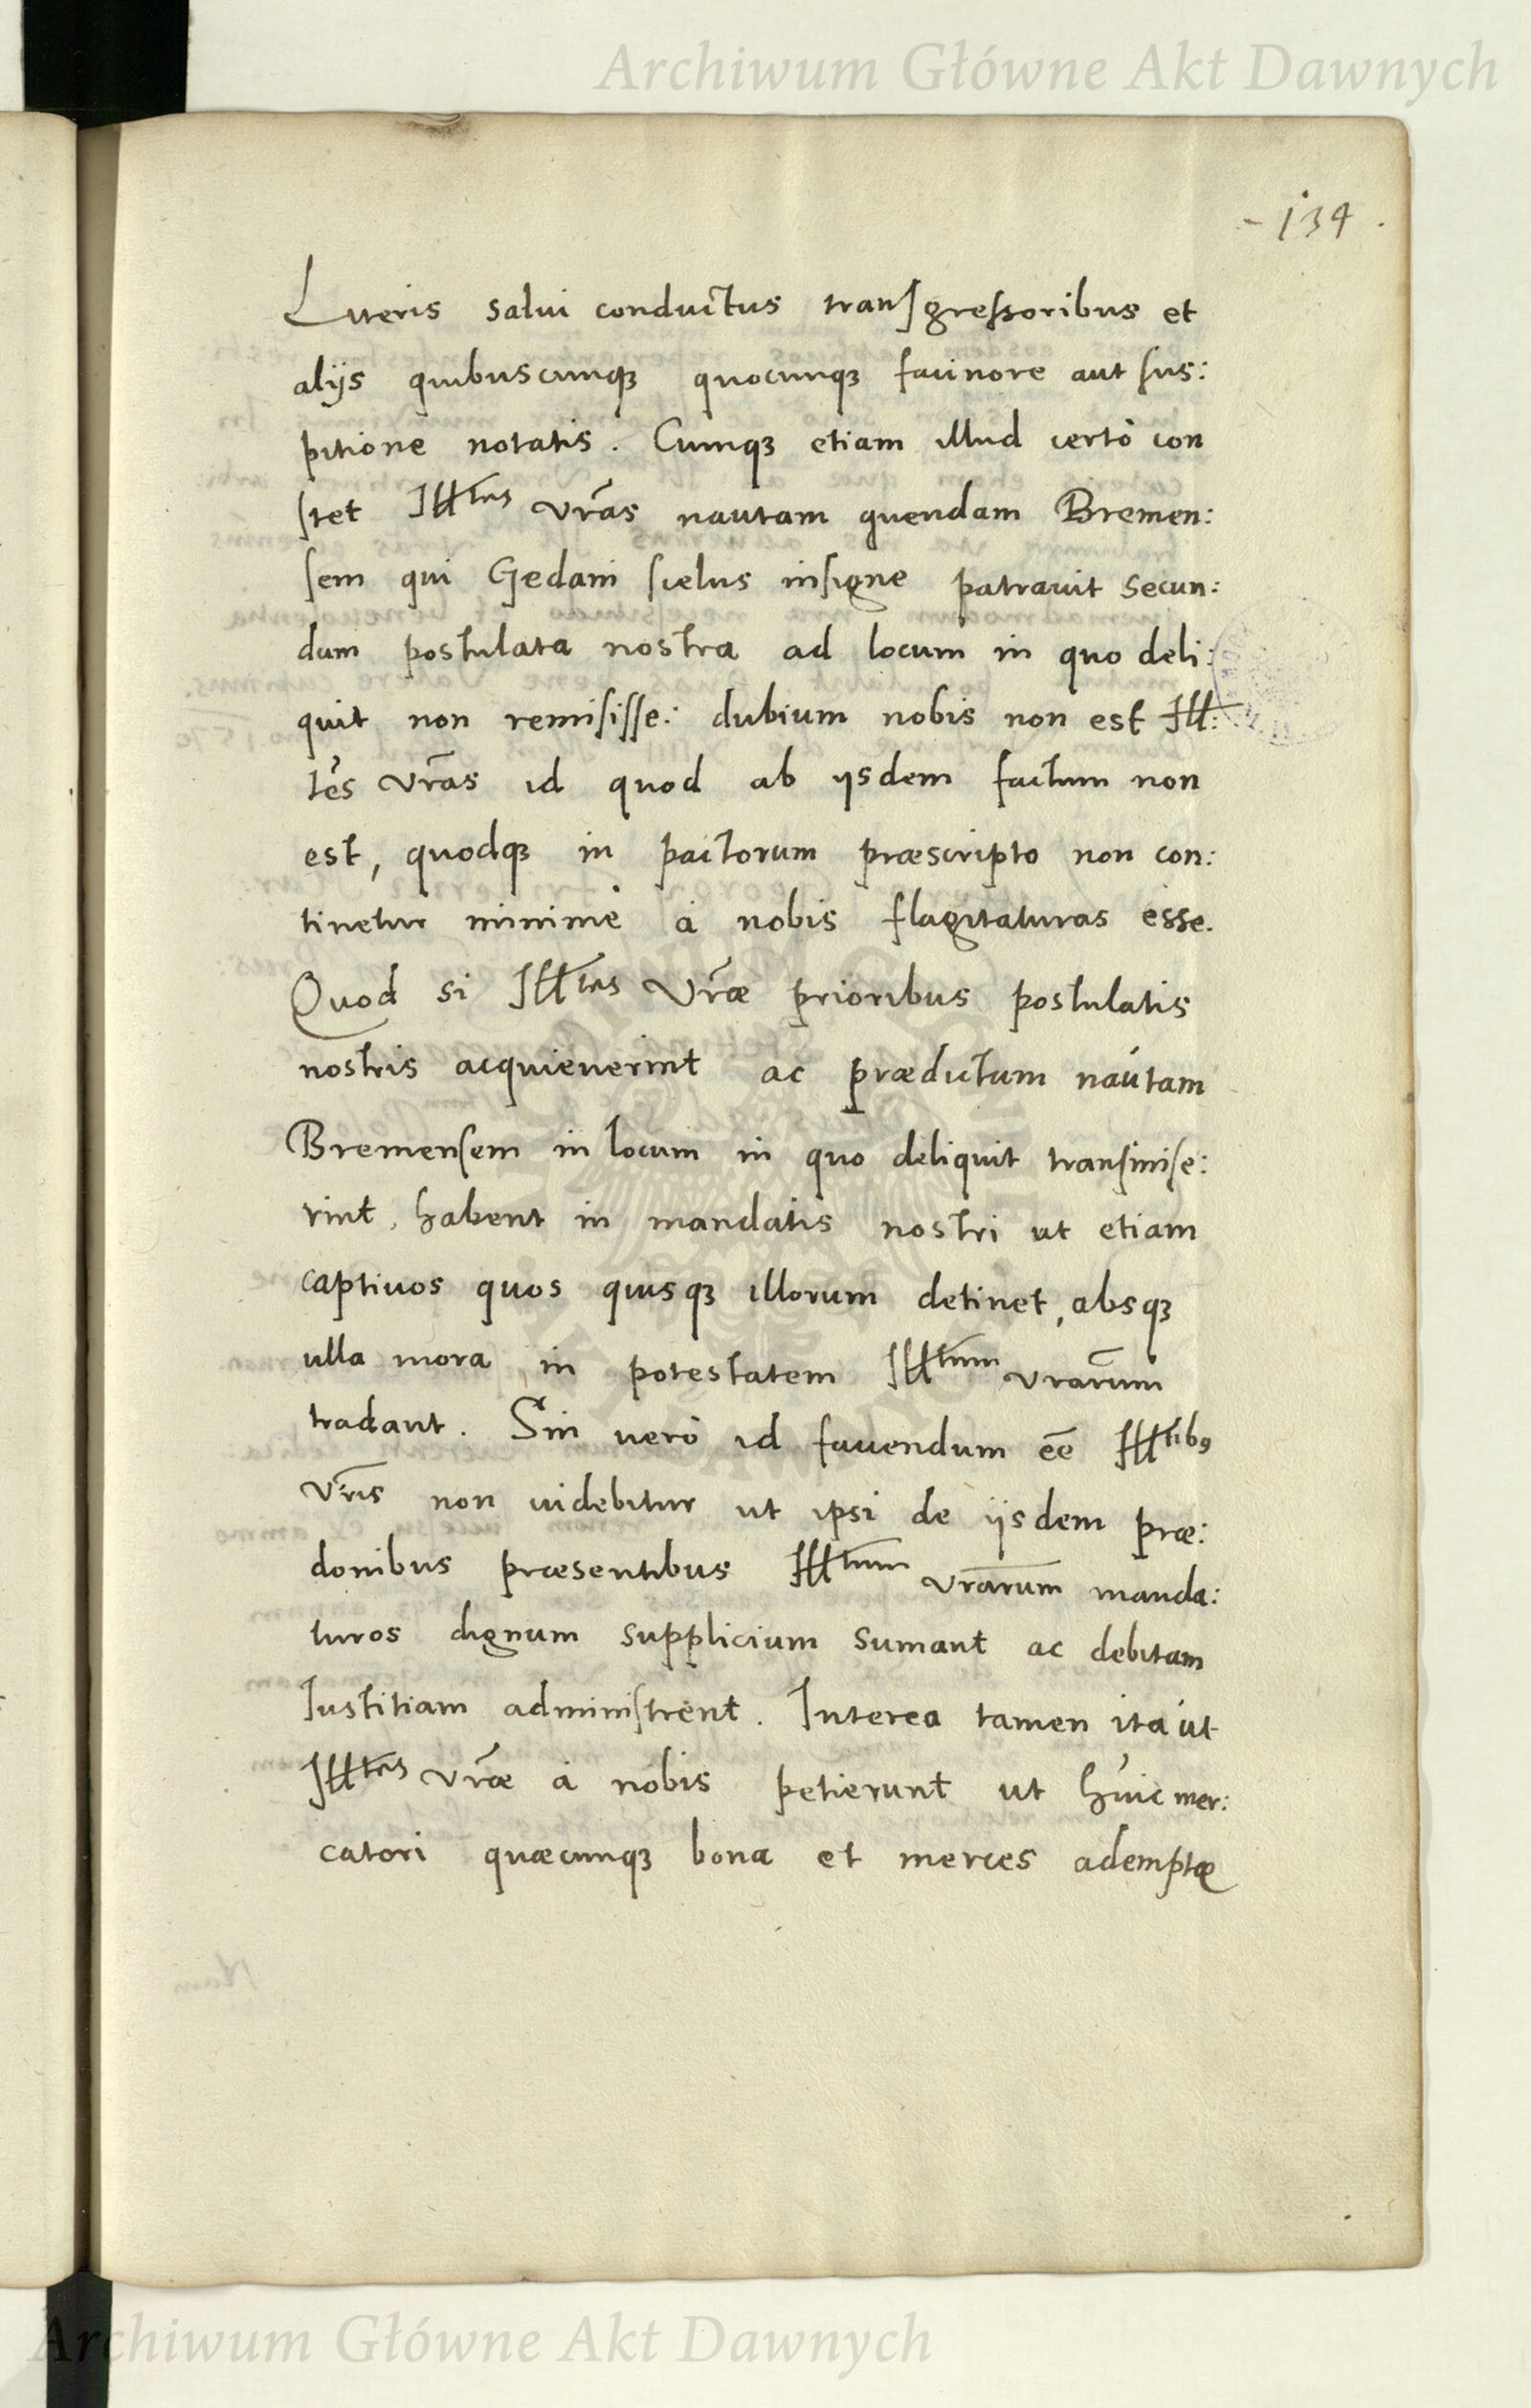 Archiwum Główne Akt Dawnych
- 134 .
Literis salui conductus transgressoribus et
alijs quibuscunqꝫ quocunqꝫ facinore aut sus:
pitione notatis. Cumqꝫ etiam illud certò con
stet Ill^tas vr̃as nautam quendam Bremen:
sem qui Gedani scelus insigne patrauit secun:
dum postulata nostra ad locum in quo deli:
quit non remisisse: dubium nobis non est Ill:
tẽs vr̃as id quod ab ijsdem factum non
est, quodqꝫ in pactorum præscripto non con:
tinetur minimè à nobis flagitaturas esse.
Quod si Ill^tes Vr̃æ prioribus postulatis
nostris acquieuerint ac prædictum náutam
Bremensem in locum in quo deliquit transmise:
rint, habent in mandatis nostri ut etiam
captiuos quos quisqꝫ illorum detinet, absqꝫ
ulla mora in potestatem Ill^tum vrarum̃
tradant. Sin uerò id faciendum eẽ Ill^tibꝰ
Vr̃is non uidebitur ut ipsi de ijsdem præ:
donibus præsentibus Ill^tum vrarum̃ manda:
turos dignum supplicium sumant ac debitam
Iustitiam administrent. Interea tamen ita út
Ill^tes vr̃æ à nobis petierunt ut húic mer:
catori quæcunqꝫ bona et merces ademptæ
Archiwum Główne Akt Dawnych